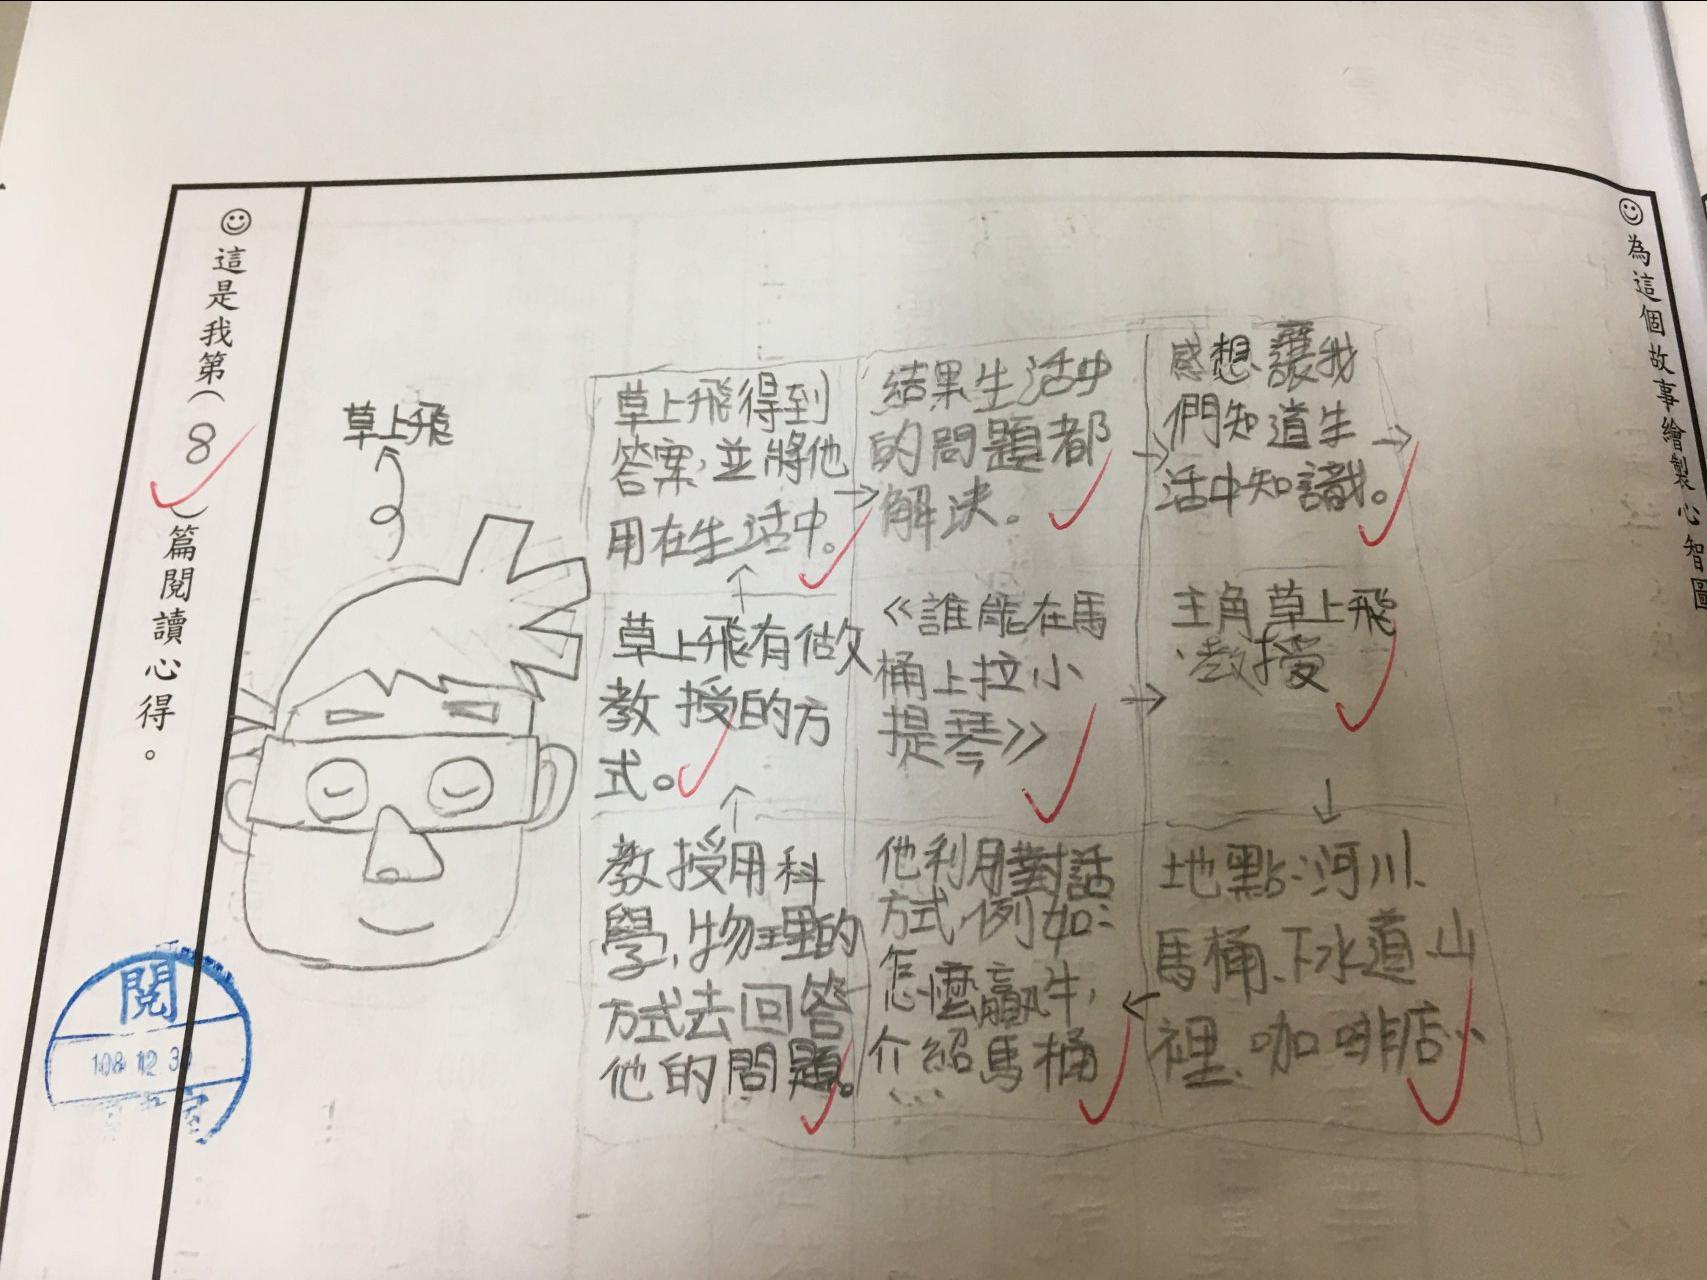 為這個故事繪製心智圖
草上飛
草上飛得到
答案,並將他
用在生活中。
結果生活中
的問題都
解決。
感想、讓我
們知道生
活中知識。
草上飛有做
教授的方
式。
《誰能在馬
桶上拉小
提琴》
主角草上飛
、教授
教授用科
學,物理的
方式去回答
他的問題。
他利用對話
方式,例如:
怎麼贏牛,
介紹馬桶
…
地點:河川、
馬桶、下水道、山
裡、咖啡店
這是我第(8)篇閱讀心得。
閱
108.12.30